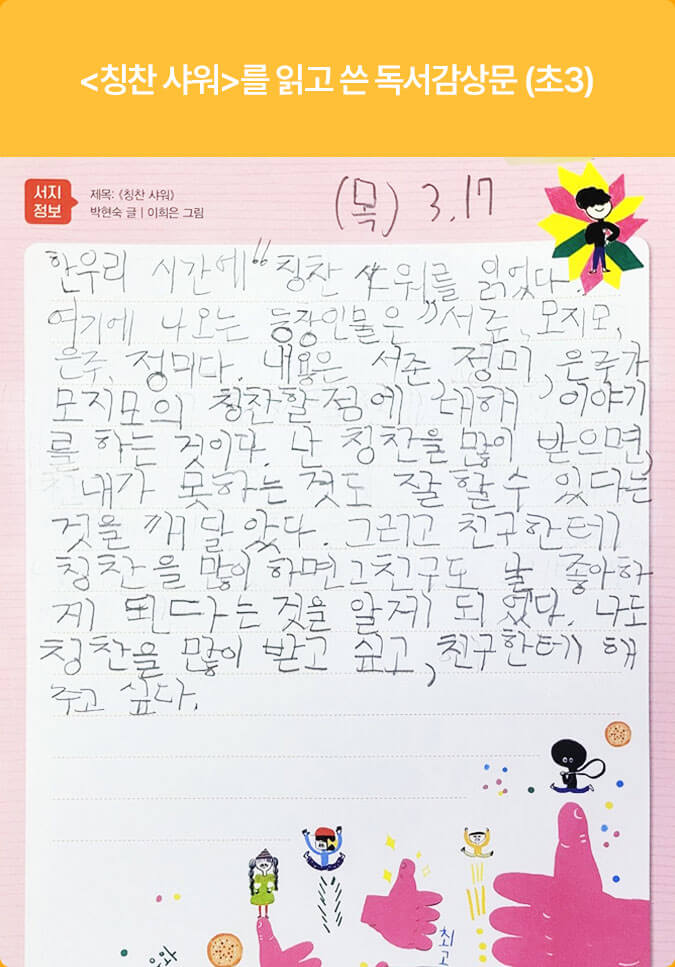 <칭찬 샤워>를 읽고 쓴 독서감상문 (초3)
서지
정보
제목: 《칭찬 샤워》
박현숙 글 | 이희은 그림
(목) 3.17
한우리 시간에 “칭찬 샤워를 읽었다.
여기에 나오는 등장인물은 "서준, 모지모,
은주, 정미다. 내용은 서준, 정미, 은주가
모지모의 칭찬할 점에 대해 이야기
를 하는 것이다. 난 칭찬을 많이 받으면,
내가 못하는 것도 잘 할 수 있다는
것을 깨 달았다. 그리고 친구한테
칭찬을 많이 하면 그친구도 날 좋아하
게 된다는 것을 알게 되었다. 나도
칭찬을 많이 받고 싶고, 친구한테 해
주고 싶다.
최고